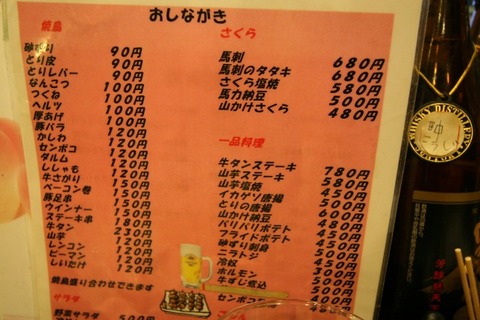 おしながき
焼鳥
砂ずり 90円
とり皮 90円
とりレバー 90円
なんこつ 100円
つくね 100円
ヘルツ 100円
厚あげ 100円
豚バラ 120円
かしわ 120円
センポコ 120円
ダルム 120円
ししゃも 120円
牛さがり 150円
ベーコン巻 150円
豚足串 150円
ウインナー 150円
ステーキ串 180円
牛タン 230円
山芋 120円
レンコン 120円
ピーマン 120円
しいたけ 120円
焼鳥盛り合わせできます
サラダ
野菜サラダ 500円
さくら
馬刺 680円
馬刺のタタキ 680円
さくら塩焼 580円
馬力納豆 500円
山かけさくら 480円
一品料理
牛タンステーキ 780円
山芋ステーキ 580円
山芋塩焼 450円
イカゲソ唐揚 500円
とりの唐揚 500円
山かけ納豆 600円
バリバリポテト 450円
フライドポテト 450円
砂ずり刺身 450円
ニラトジ 400円
冷奴 300円
ホルモン 400円
牛すじ煮込 500円
センポコ
WHISKY DISTILLERY